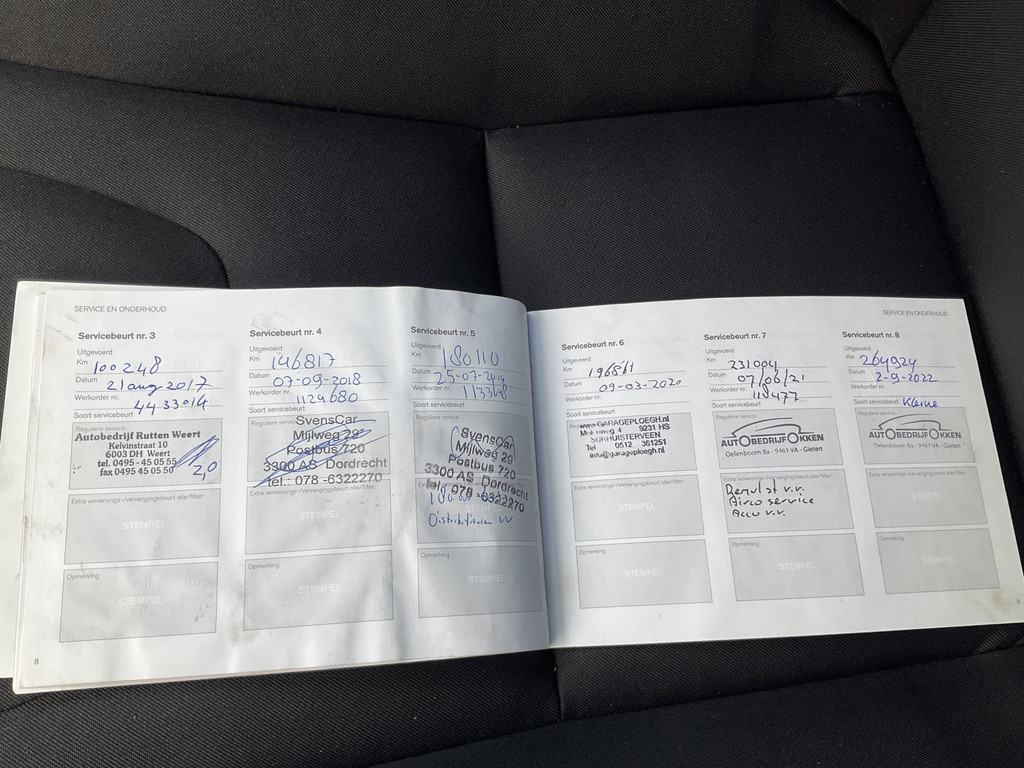 SERVICE EN ONDERHOUD
Servicebeurt nr. 3
Uitgevoerd
Km 100248
Datum 21 aug 2017
Werkorder nr. 4433014
Soort servicebeurt
Reguliere service
Autobedrijf Rutten Weert
Kelvinstraat 10
6003 DH Weert
tel. 0495 - 45 05 55
fax 0495 45 05 50
Extra verversings-/vervangingsbeurt olie/filter:
STEMPEL
Opmerking
STEMPEL
8
Servicebeurt nr. 4
Uitgevoerd
Km 146817
Datum 07-09-2018
Werkorder nr. 1129680
Soort servicebeurt
Reguliere service
SvensCar
Mijlweg 29
Postbus 720
3300 AS Dordrecht
tel.: 078 -6322270
Extra verversings-/vervangingsbeurt olie/filter:
STEMPEL
Opmerking
STEMPEL
Servicebeurt nr. 5
Uitgevoerd
Km 180110
Datum 25-07-2019
Werkorder nr.
Soort servicebeurt
Reguliere service
SvensCar
Mijlweg 29
Postbus 720
3300 AS Dordrecht
tel.: 078 -6322270
Distributieriem vv
Opmerking
STEMPEL
SERVICE EN ONDERHOUD
Servicebeurt nr. 6
Uitgevoerd
Km 196861
Datum 09-03-2020
Werkorder nr.
Soort servicebeurt
www.GARAGEPLOEGH.nl
4 9231 HS
SURHUISTERVEEN
Tel 0512 361251
info@garageploegh.nl
Extra verversings-/vervangingsbeurt olie/filter:
STEMPEL
Opmerking
STEMPEL
Servicebeurt nr. 7
Uitgevoerd
Km 231004
Datum 07/06/21
Werkorder nr. 118477
Soort servicebeurt
Reguliere service
AUTOBEDRIJF OKKEN
Oelenboom 8a - 9461 VA - Gieten
Extra verversings-/vervangingsbeurt olie/filter:
Remvlst v.v.
Airco service
Accu v.v.
Opmerking
STEMPEL
Servicebeurt nr. 8
Uitgevoerd
Km 264924
Datum 2-9-2022
Werkorder nr.
Soort servicebeurt Kleine
Reguliere service
AUTOBEDRIJF OKKEN
Oelenboom 8a - 9461 VA - Gieten
Extra verversings-/vervangingsbeurt olie/filter:
STEMPEL
Opmerking
STEMPEL